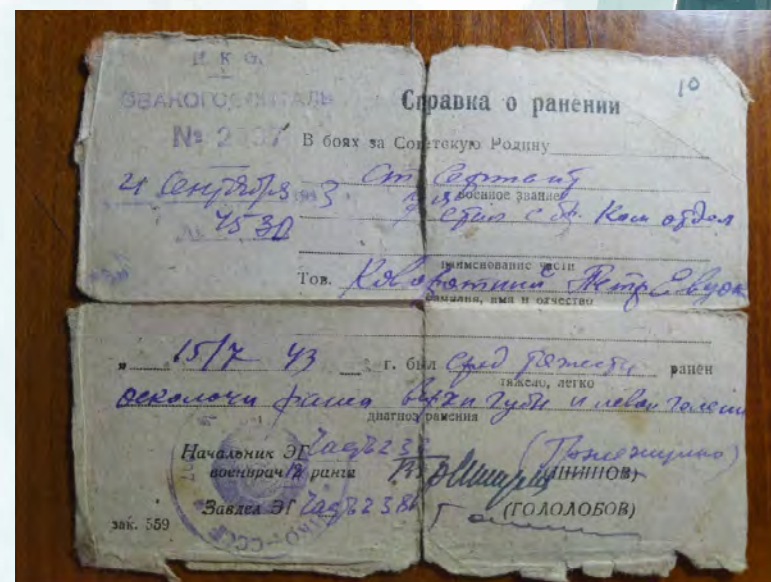 Н. К. О.
ЭВАКОГОСПИТАЛЬ
№
10
Справка о ранении
В боях за Советскую Родину
21 Сентября 1943
4530
Ст Сержант
военное звание
Ком отдел
наименование части
Тов. Петр Евдок
фамилия, имя и отчество
15/7 43 г. был сред тяжести ранен
тяжело, легко
осколочн рана верхн губы и левой голени
диагноз ранения
Начальник ЭГ
военврач ранга (ШИШОВ)
Завдел ЭГ (ГОЛОЛОБОВ)
зак. 559